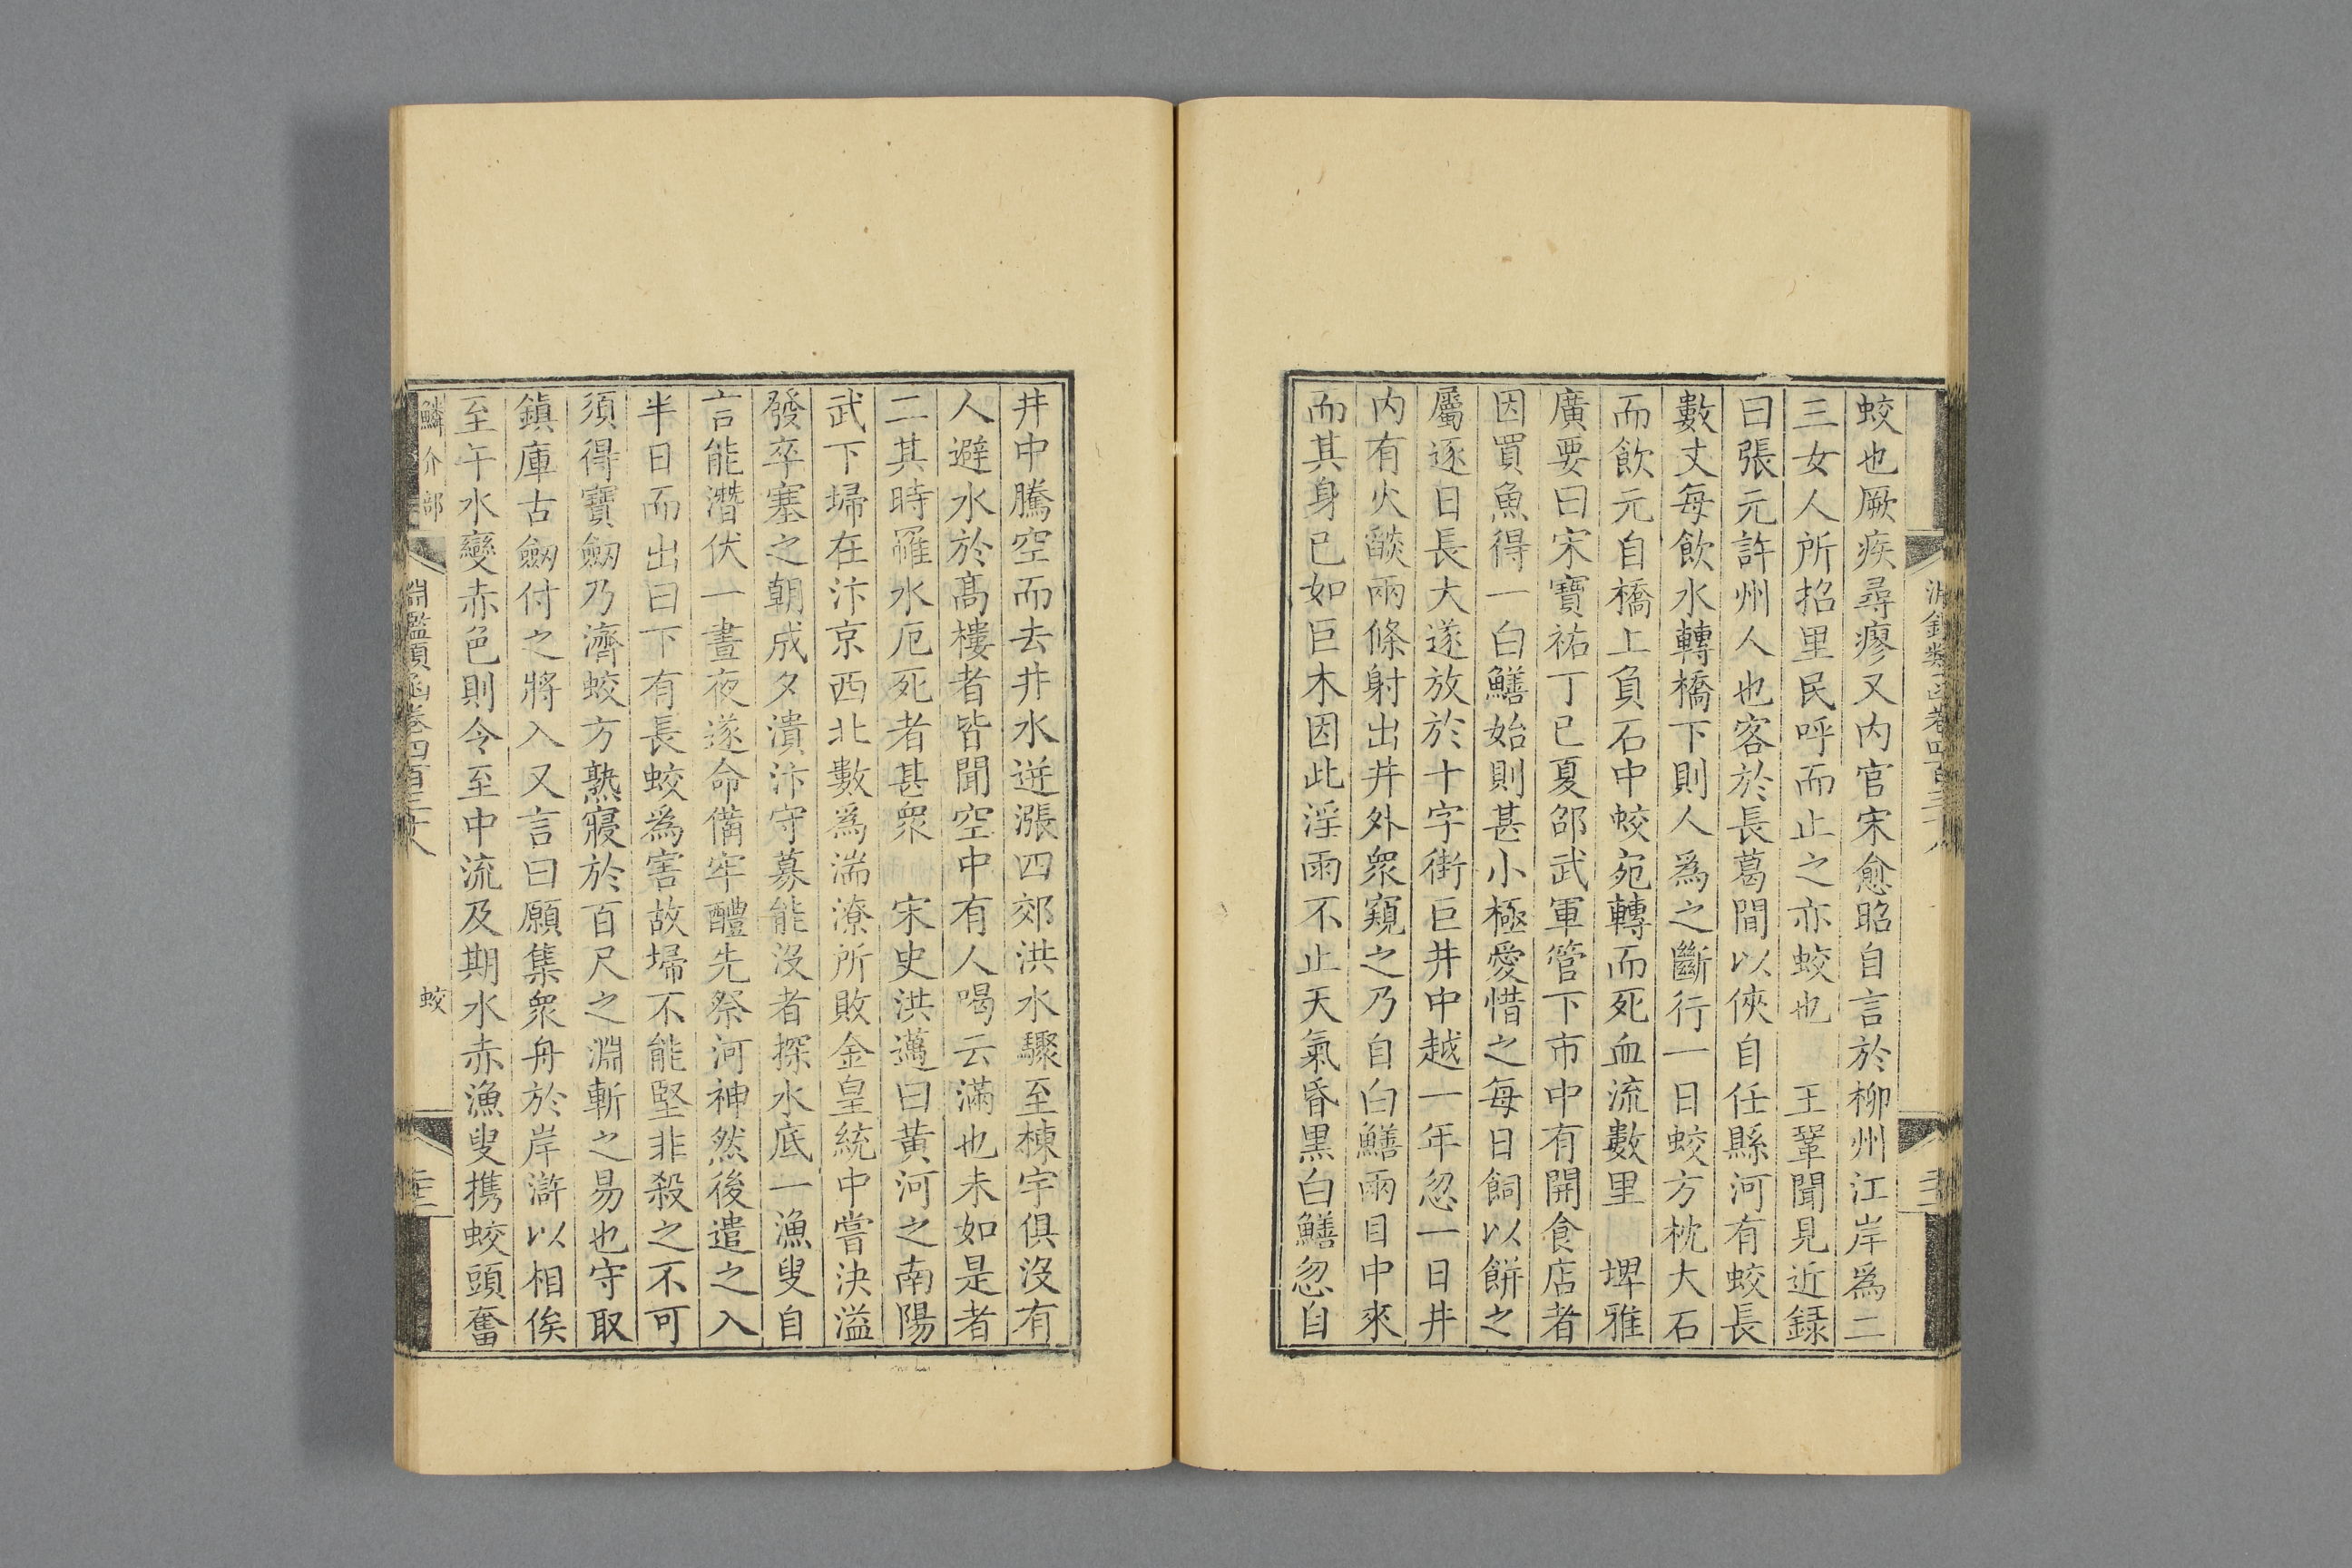 蛟也厥疾尋瘳又内官宋愈昭自言於柳州江岸爲二
三女人所招里民呼而止之亦蛟也　王鞏聞見近録
曰張元許州人也客於長葛間以俠自任縣河有蛟長
數丈每飲水轉橋下則人爲之斷行一日蛟方枕大石
而飲元自橋上負石中蛟宛轉而死血流數里　埤雅
廣要曰宋寶祐丁巳夏邵武軍管下市中有開食店者
因買魚得一白鱔始則甚小極愛惜之每日飼以餅之
屬逐日長大遂放於十字街巨井中越一年忽一日井
内有火燄兩條射出井外衆窺之乃自白鱔兩目中來
而其身已如巨木因此淫雨不止天氣昏黒白鱔忽自
井中騰空而去井水迸漲四郊洪水驟至棟宇俱沒有
人避水於髙樓者皆聞空中有人喝云滿也未如是者
二其時罹水厄死者甚衆　宋史洪邁曰黃河之南陽
武下埽在汴京西北數爲湍潦所敗金皇統中嘗決溢
發卒塞之朝成夕潰汴守募能沒者探水底一漁叟自
言能潛伏一晝夜遂命備牢醴先祭河神然後遣之入
半日而出曰下有長蛟爲害故埽不能堅非殺之不可
須得寶劒乃濟蛟方熟寢於百尺之淵斬之易也守取
鎮庫古劒付之將入又言曰願集衆舟於岸滸以相俟
至午水變赤色則令至中流及期水赤漁叟携蛟頭奮
鱗介部
淵鑑類函卷四百三十八
蛟